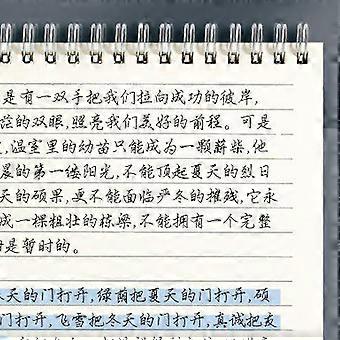 是有一双手把我们拉向成功的彼岸,
的双眼,照亮我们美好的前程。可是
,温室里的幼苗只能成为一颗薪柴,他
晨的第一缕阳光,不能顶起夏天的烈日
天的硕果,更不能面临严冬的摧残,它永
成一棵粗壮的栋梁,不能拥有一个完整
是暂时的。
天的门打开,绿荫把夏天的门打开,硕
门打开,飞雪把冬天的门打开,真诚把友